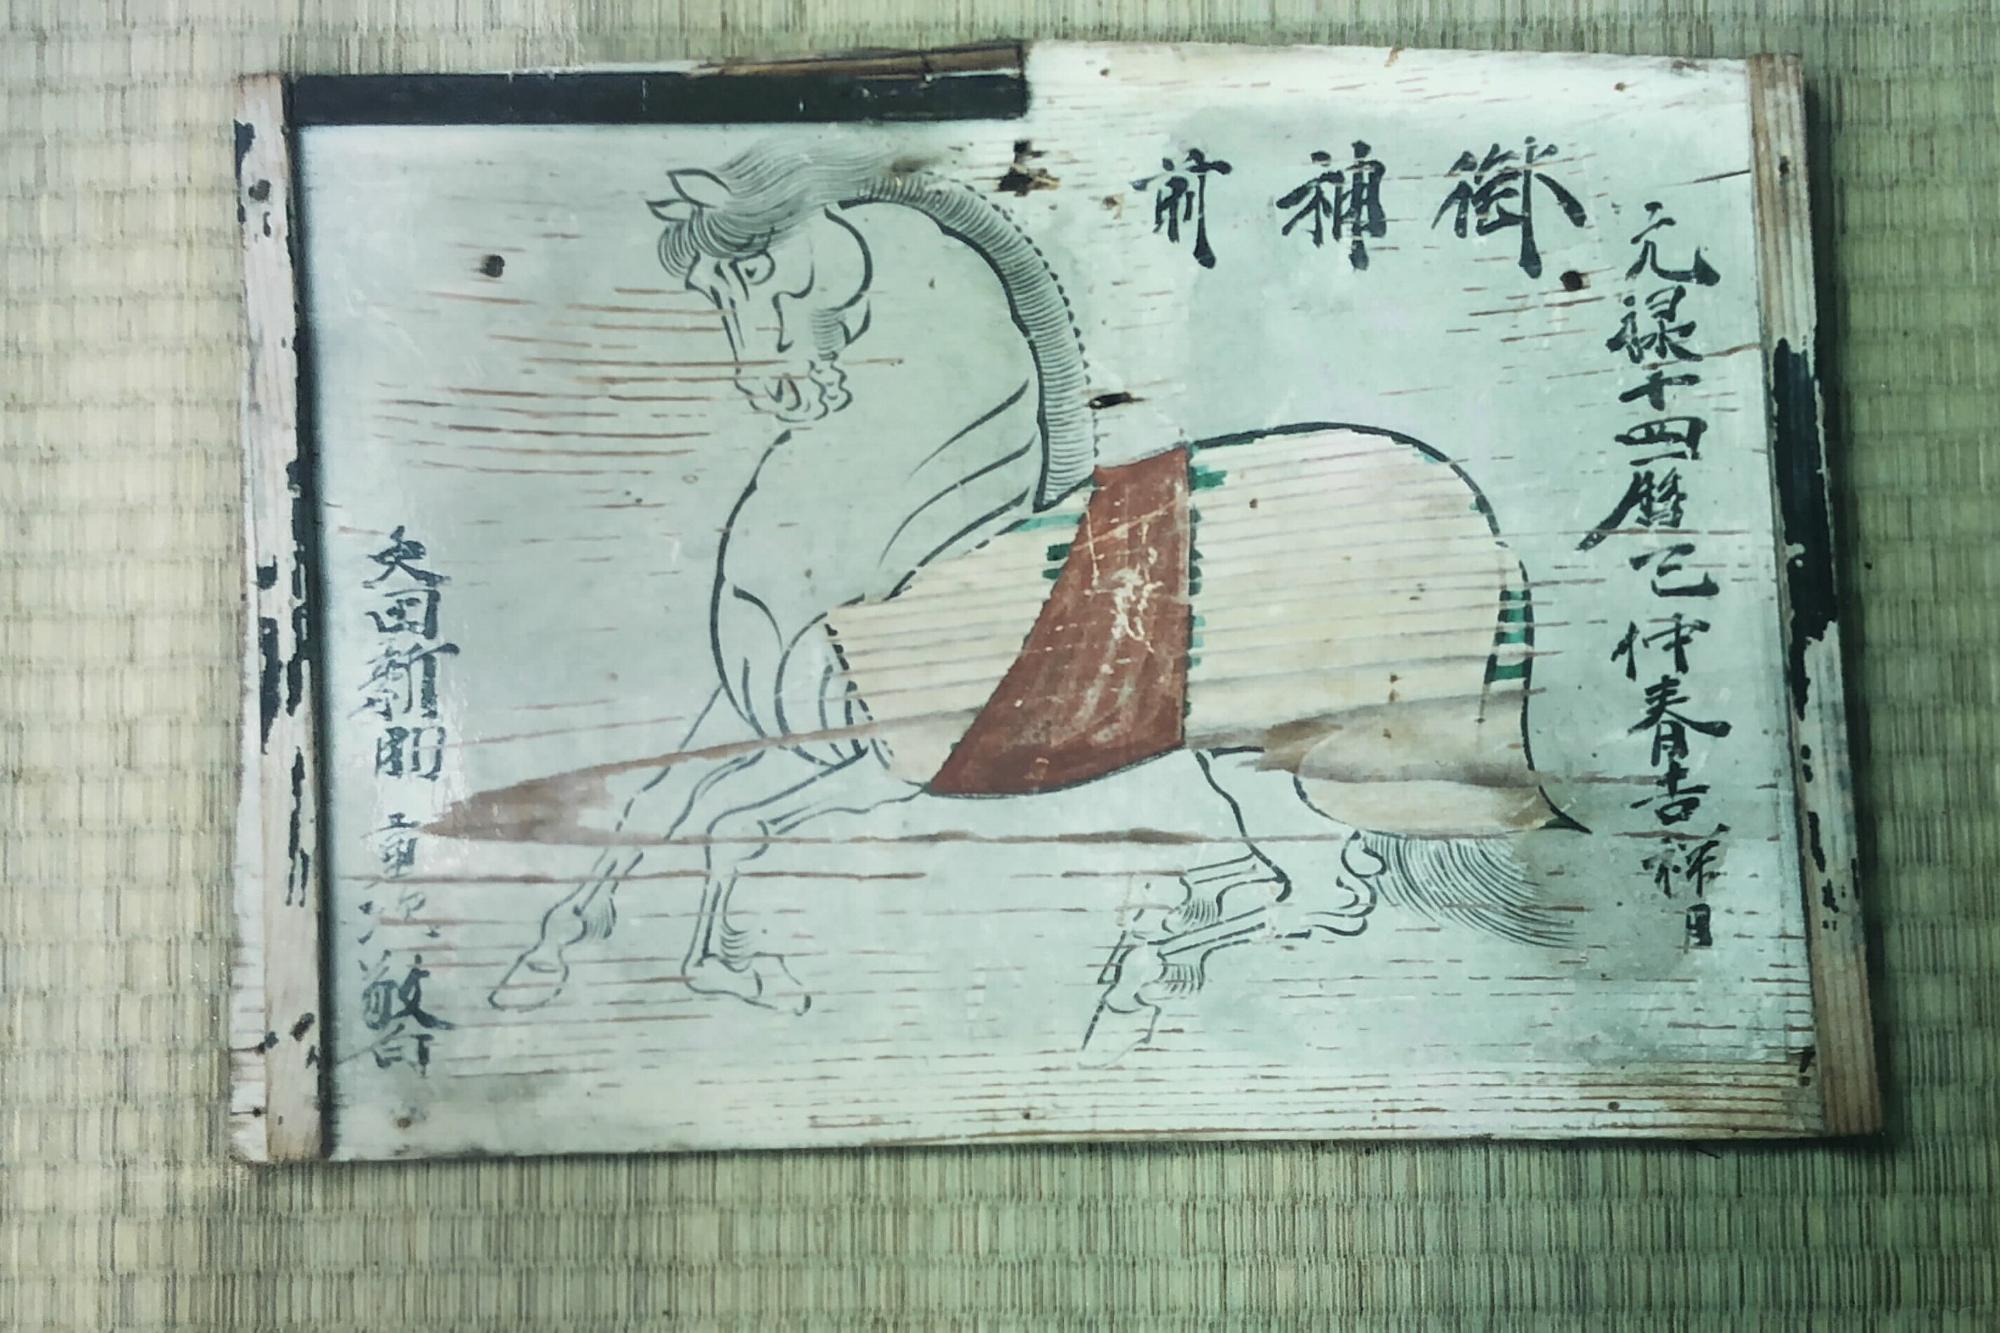 御神前
元禄十四暦巳仲春吉祥日
矢田新助 重次 敬白